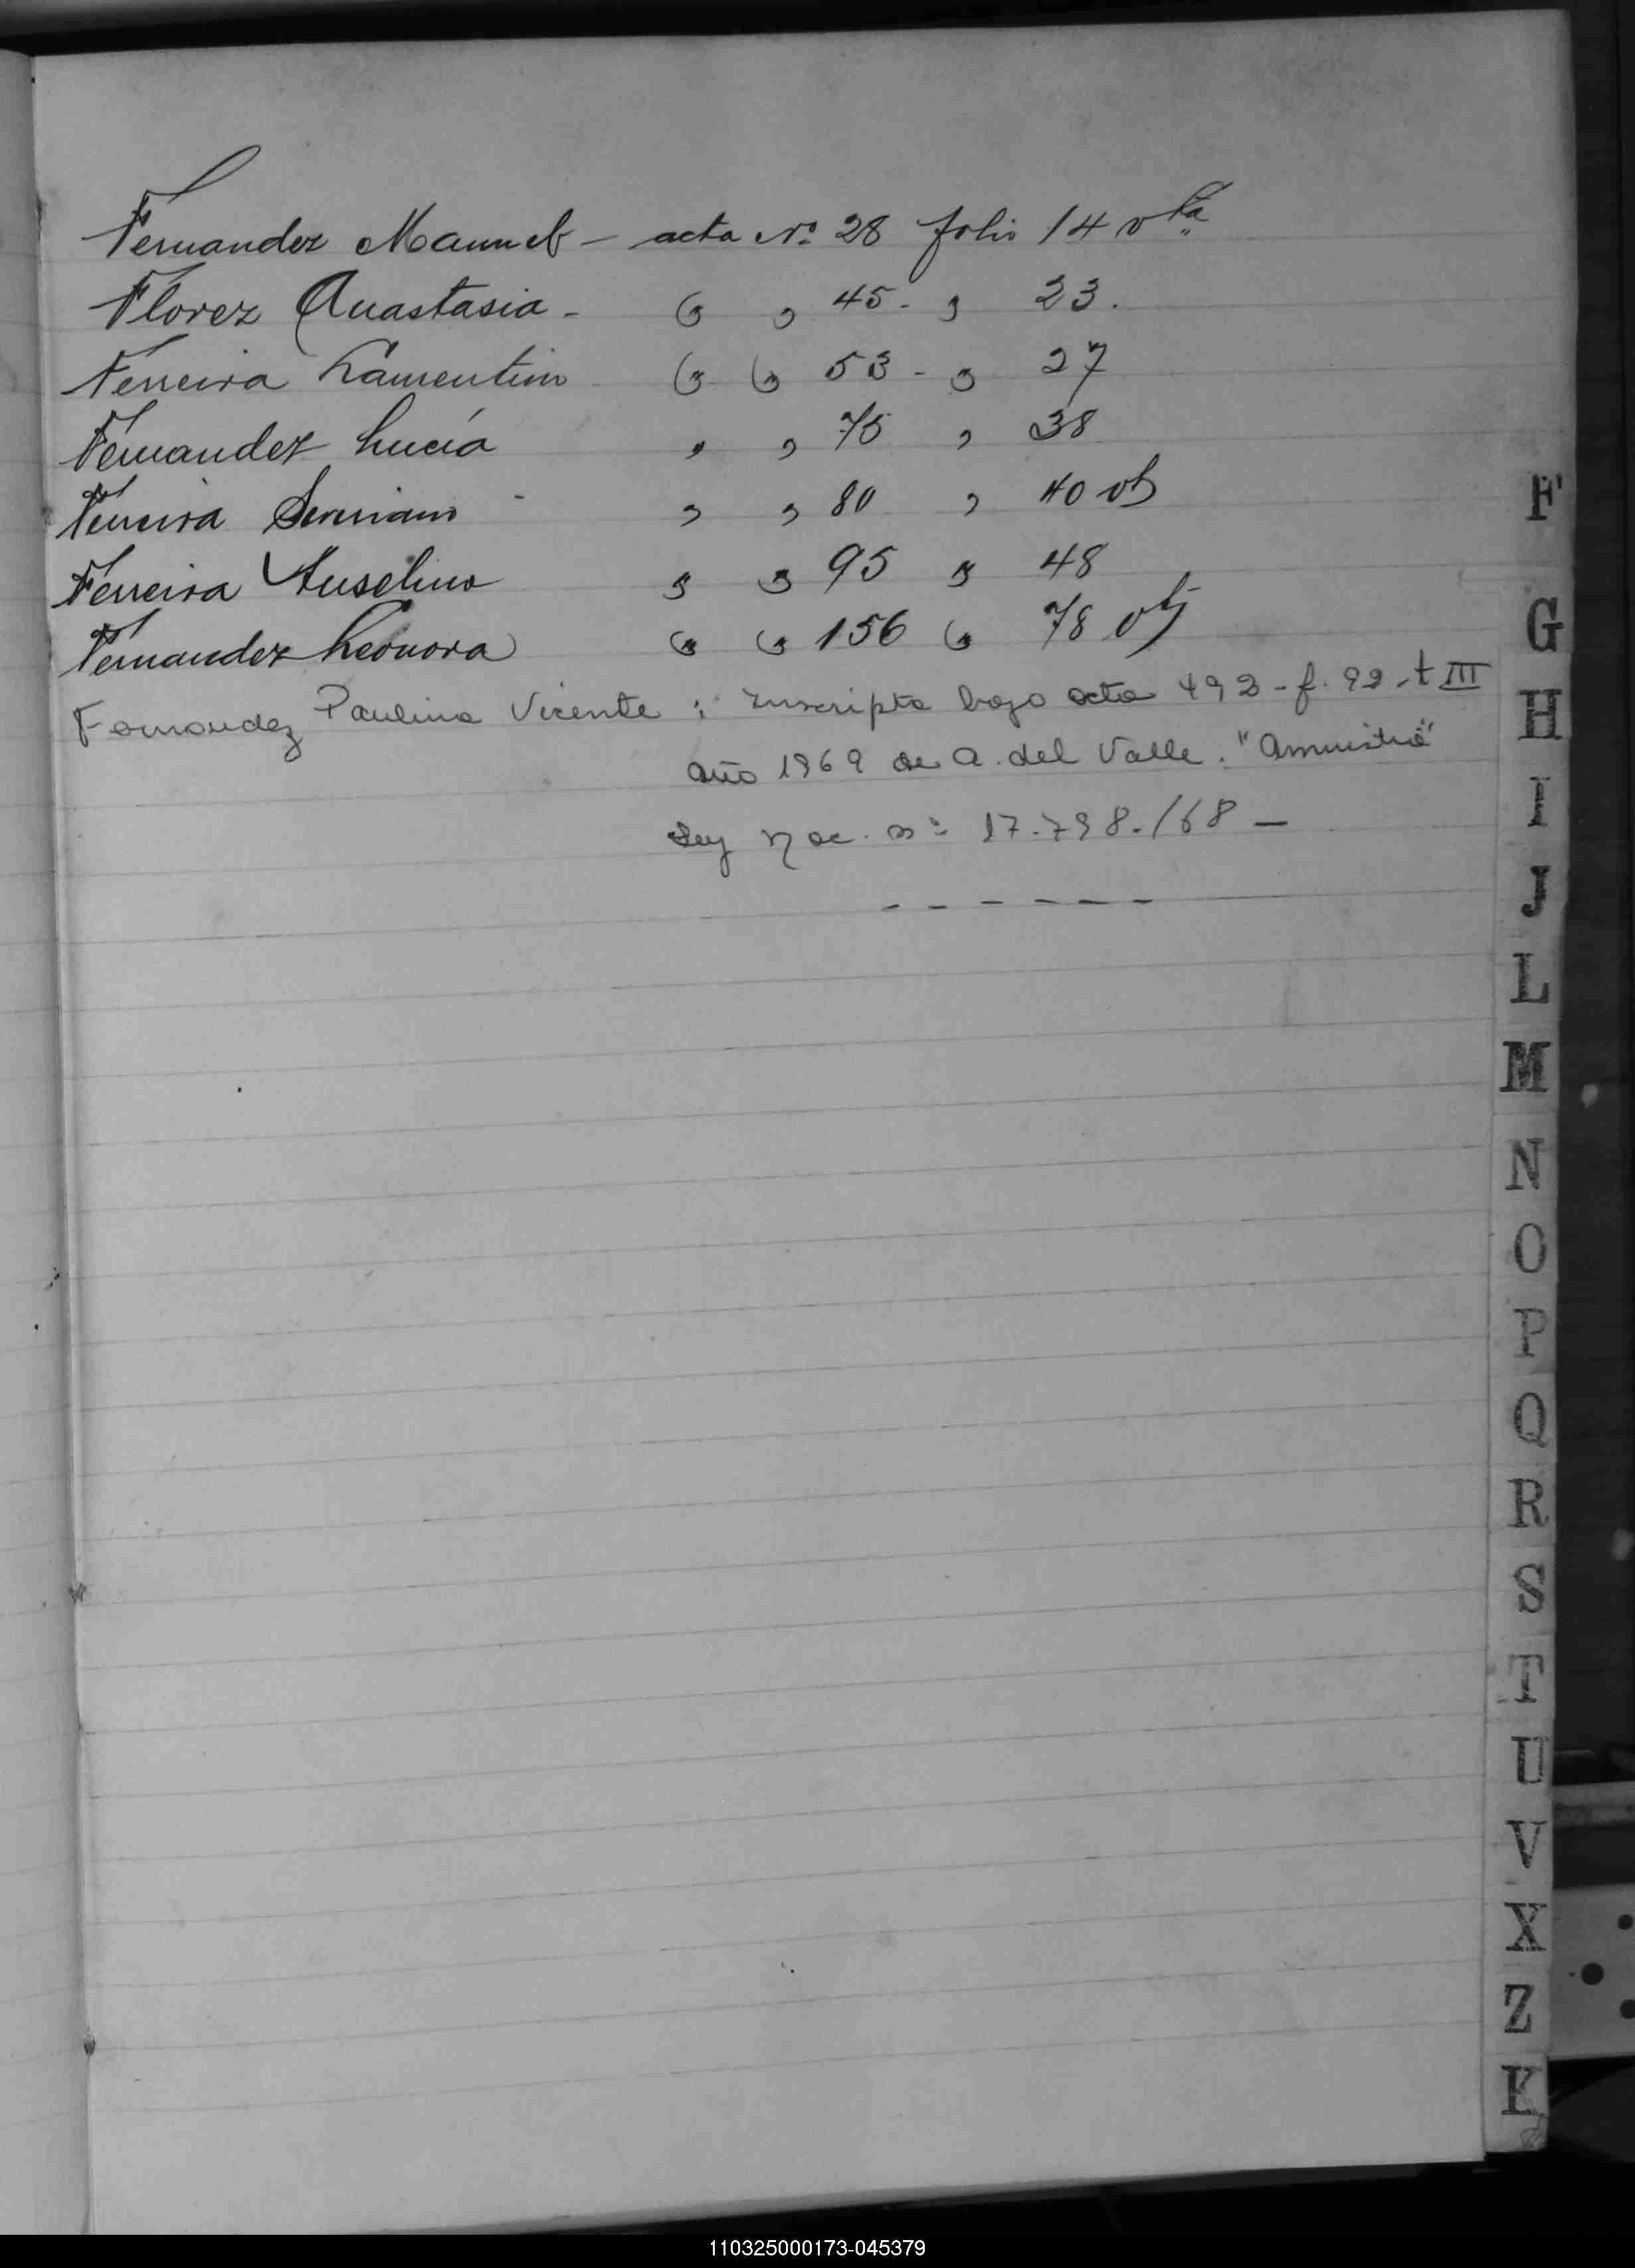 Fernandez Manuel - acta Nº 28 folio 14 vta
Florez Anastasia - " " 45 - " 23.
Ferreira Lamentino " " 53 - " 27
Fernandez Lucía " " 75 " 38
Ferreira Severiano - " " 80 " 40 vt
Ferreira Anselmo " " 95 " 48
Fernandez Leonora " " 156 " 78 vt
Fernandez Paulino Vicente : Inscripto bajo acta 492 - f. 92 - t III
año 1969 de A. del Valle. "Amnistia"
Ley Nac. nº 17.798./68 —
- - - - - -
F
G
H
I
J
L
M
N
O
P
Q
R
S
T
U
V
X
Z
K
110325000173-045379